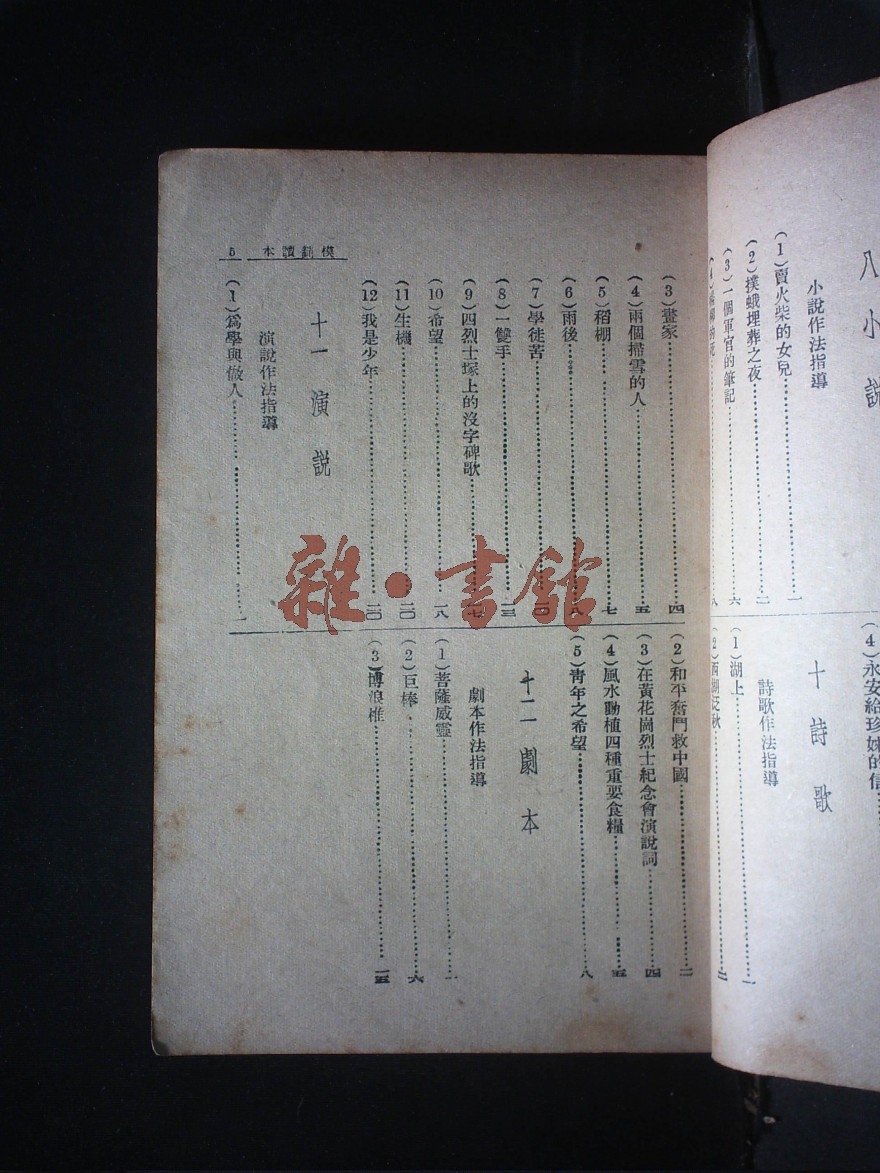 八 小 説
小說作法指導
(1)賣火柴的女兒……一
(2)撲蛾埋葬之夜……二
(3)一個軍官的筆記……六
(4)永安給珍妹的信
十 詩 歌
詩歌作法指導
(1)湖上……一
(2)西湖泛秋……二
模範讀本 5
(3)畫家……四
(4)兩個掃雪的人……五
(5)稻棚……七
(6)雨後……八
(7)學徒苦……一〇
(8)一雙手……一三
(9)四烈士塚上的沒字碑歌……一七
(10)希望……一八
(11)生機……二〇
(12)我是少年……二〇
十一 演 說
演說作法指導
(1)爲學與做人……一
(2)和平奮鬥救中國……二
(3)在黃花崗烈士紀念會演說詞……四
(4)風水動植四種重要食糧……五
(5)靑年之希望……八
十二 劇 本
劇本作法指導
(1)菩薩威靈……一
(2)巨棒……六
(3)博浪椎……一五
雜·書館